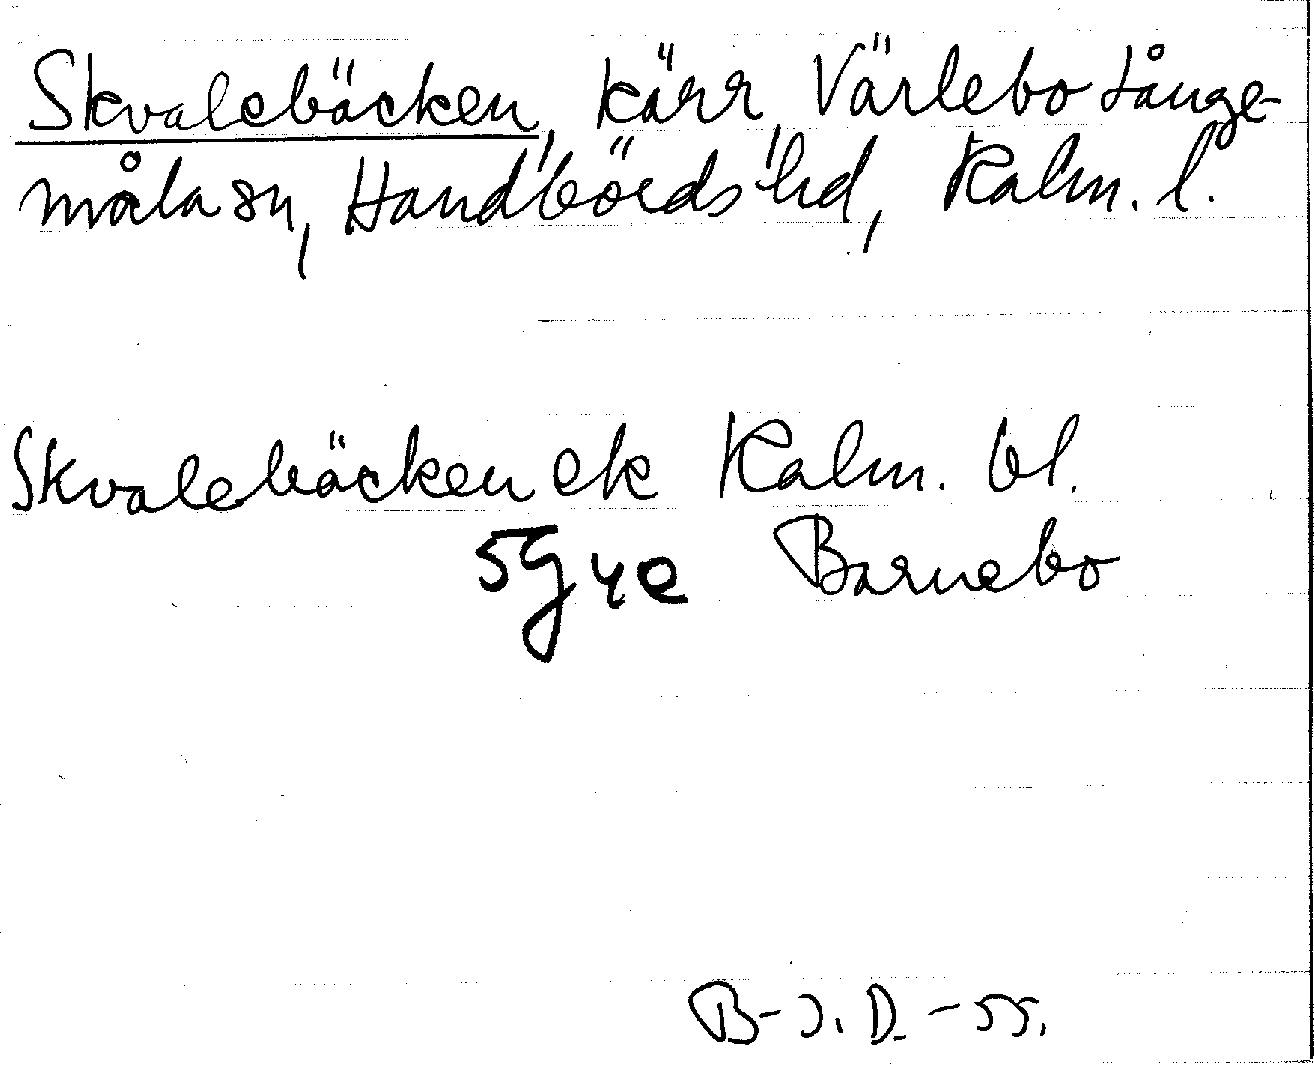 Skvalebäcken, kärr, Värlebo Långe-
måla sn, Handbörds hd, Kalm. l.
Skvalebäcken ek Kalm. bl.
5G4e Barnebo
B-J. D. -55.